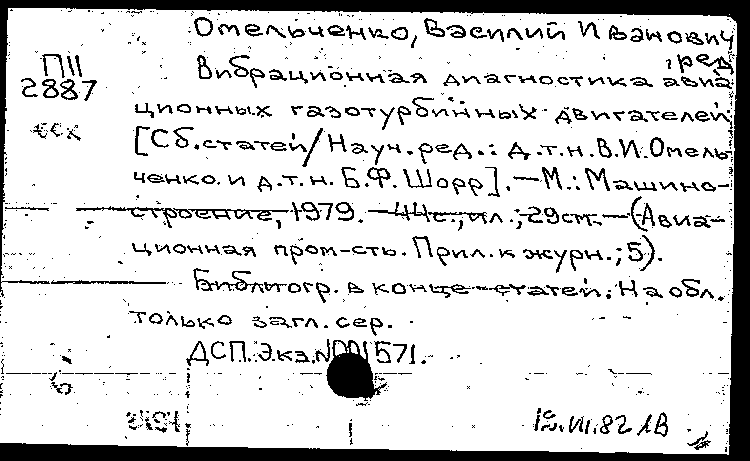 Омельченко, Василий Иванович
, ред
ПII
2887
Вибрационная диагностика авиа
ционных газотурбинных двигателей
[Сб.статей/Науч.ред.: д.т.н.В.И.Омель
ченко и д.т.н. Б.Ф. Шорр]. —М.: Машино-
строение, 1979. —44с., ил.; 29см. —(Авиа-
ционная пром-сть. Прил. к журн.; 5).
Библиогр. в конце статей. На обл.
только загл. сер.
ДСП. Экз.N001571.
12.VII.82 1В